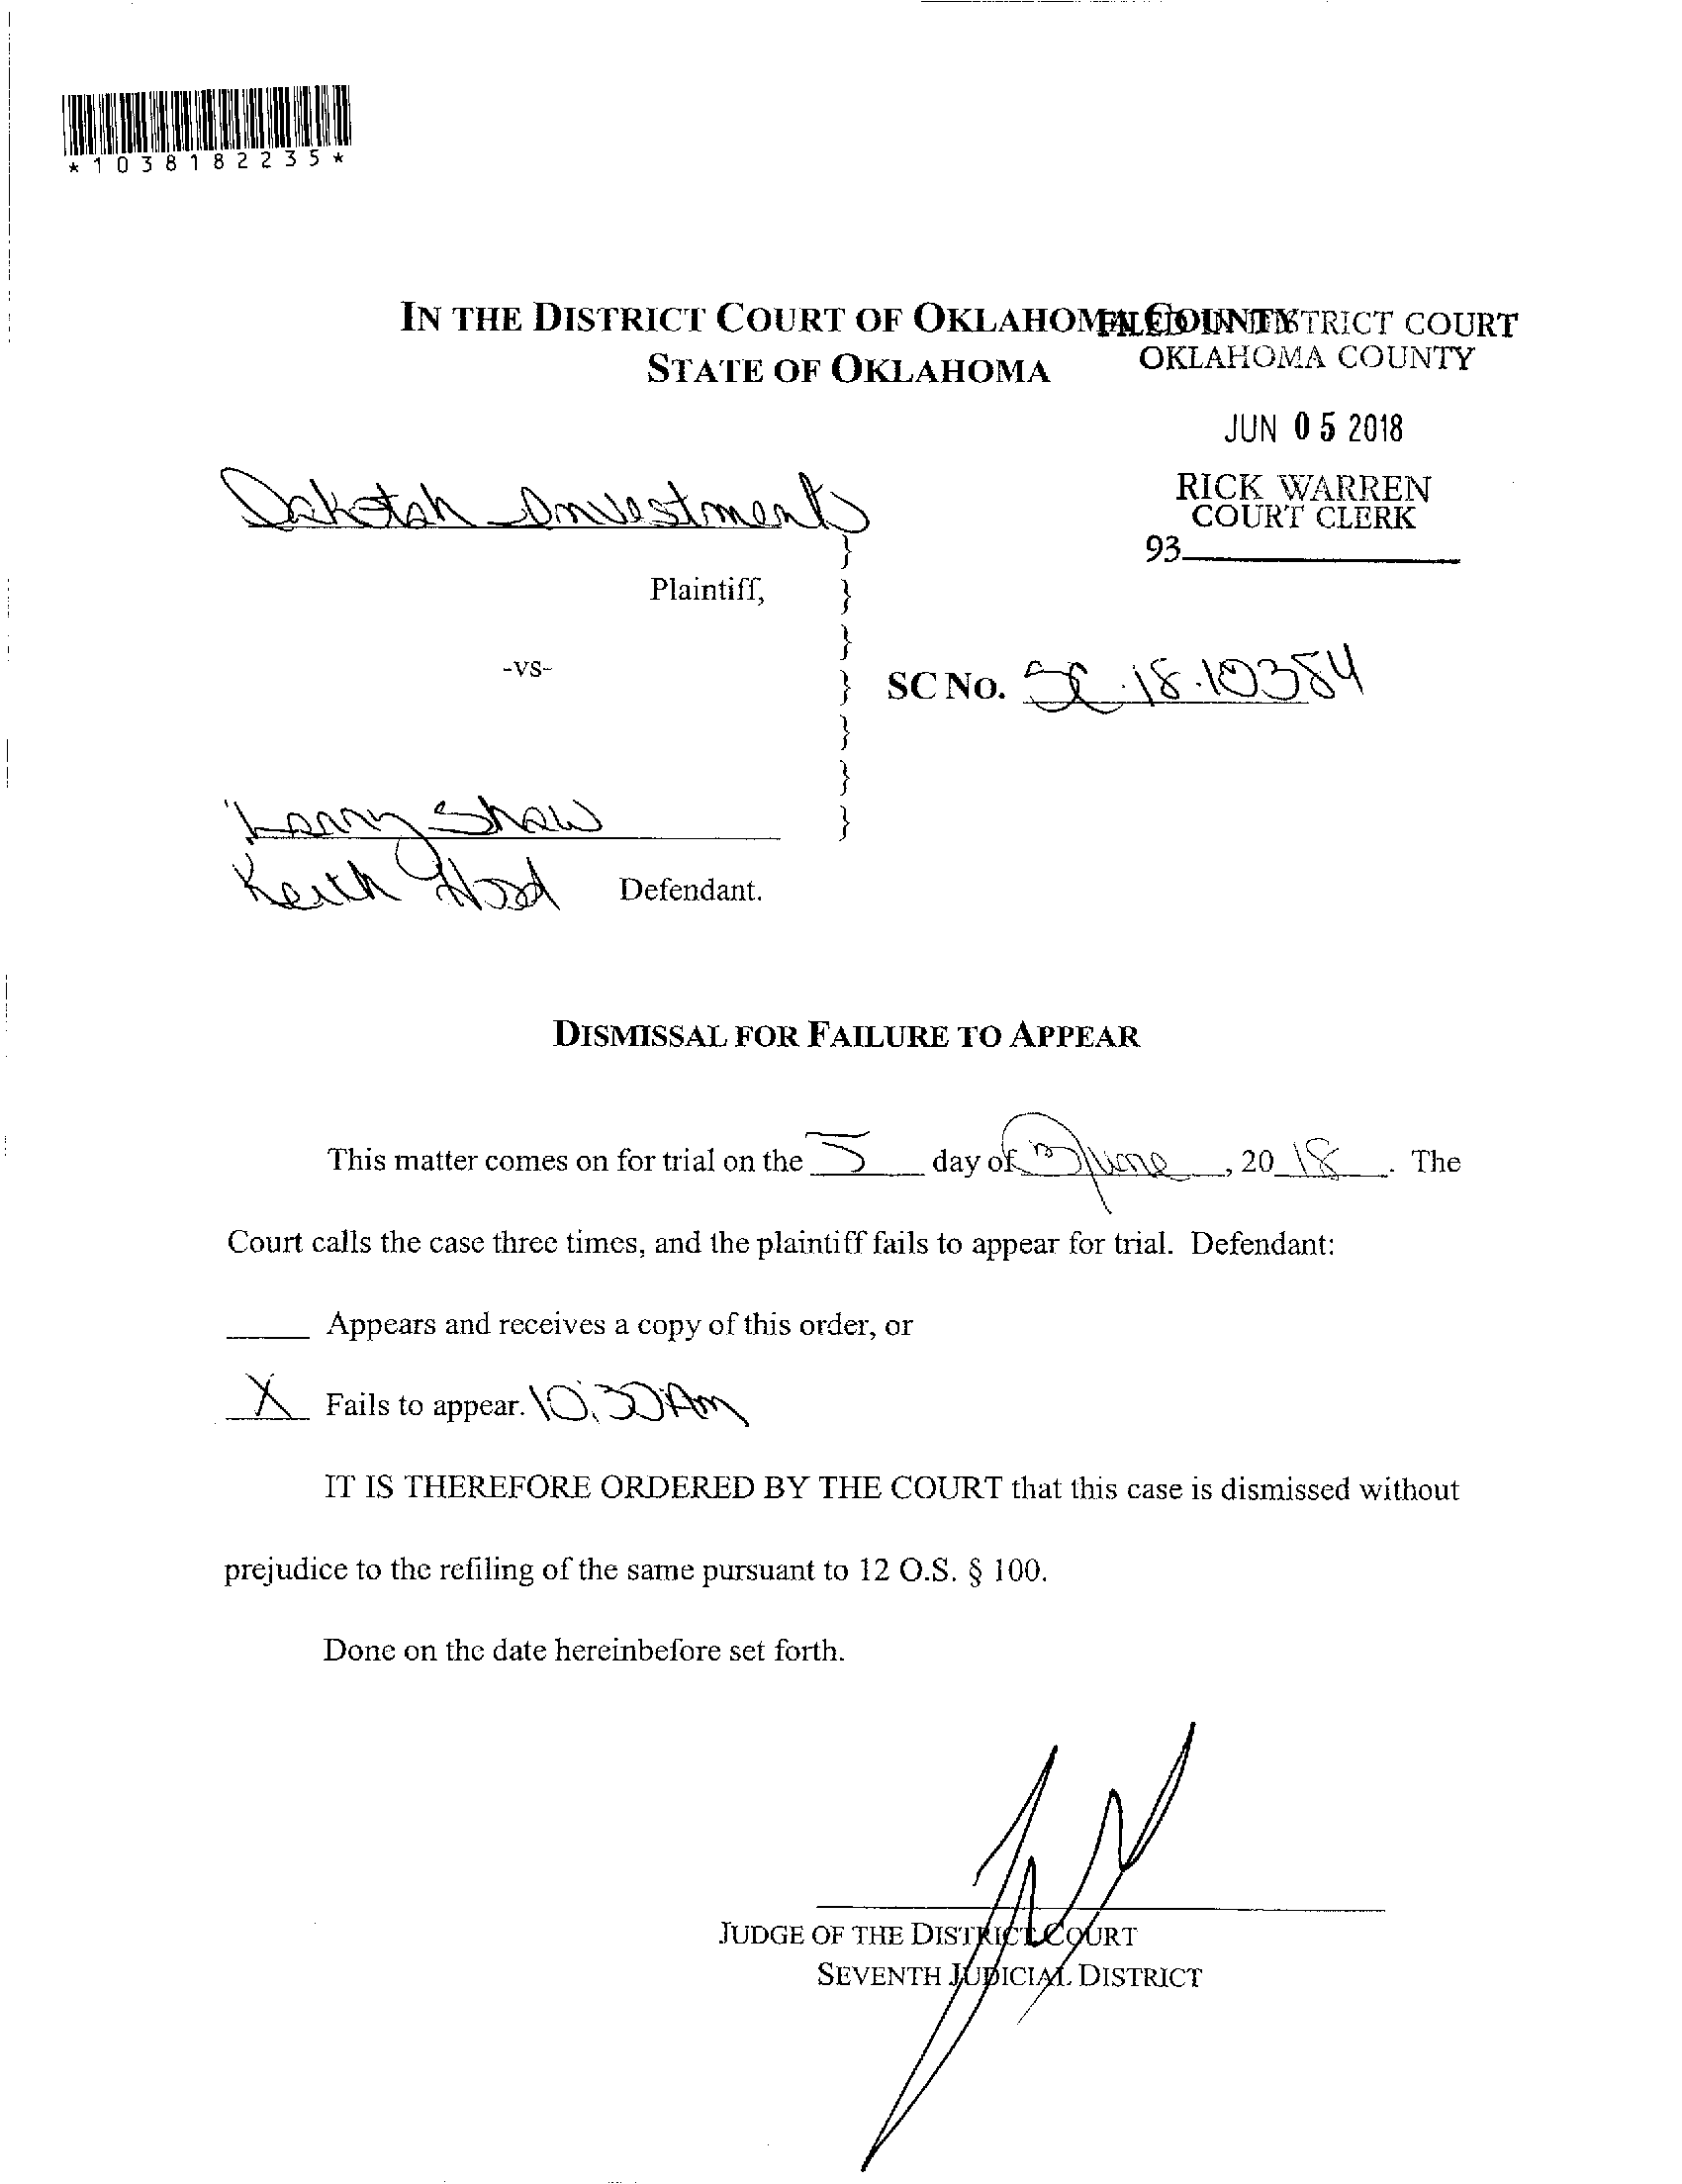 *1038182235*
IN THE DISTRICT COURT OF OKLAHOMA COUNTY
STATE OF OKLAHOMA
FILED IN DISTRICT COURT
OKLAHOMA COUNTY
JUN 05 2018
RICK WARREN
COURT CLERK
93
Dakotah Investments
}
Plaintiff, }
}
-vs-
} SC NO. SC.18.10384
}
}
Larry Shaw }
Keith Hood Defendant.
DISMISSAL FOR FAILURE TO APPEAR
This matter comes on for trial on the 5 day of June, 2018. The
Court calls the case three times, and the plaintiff fails to appear for trial. Defendant:
____ Appears and receives a copy of this order, or
X Fails to appear. 10:30 Am
IT IS THEREFORE ORDERED BY THE COURT that this case is dismissed without
prejudice to the refiling of the same pursuant to 12 O.S. § 100.
Done on the date hereinbefore set forth.
JUDGE OF THE DISTRICT COURT
SEVENTH JUDICIAL DISTRICT